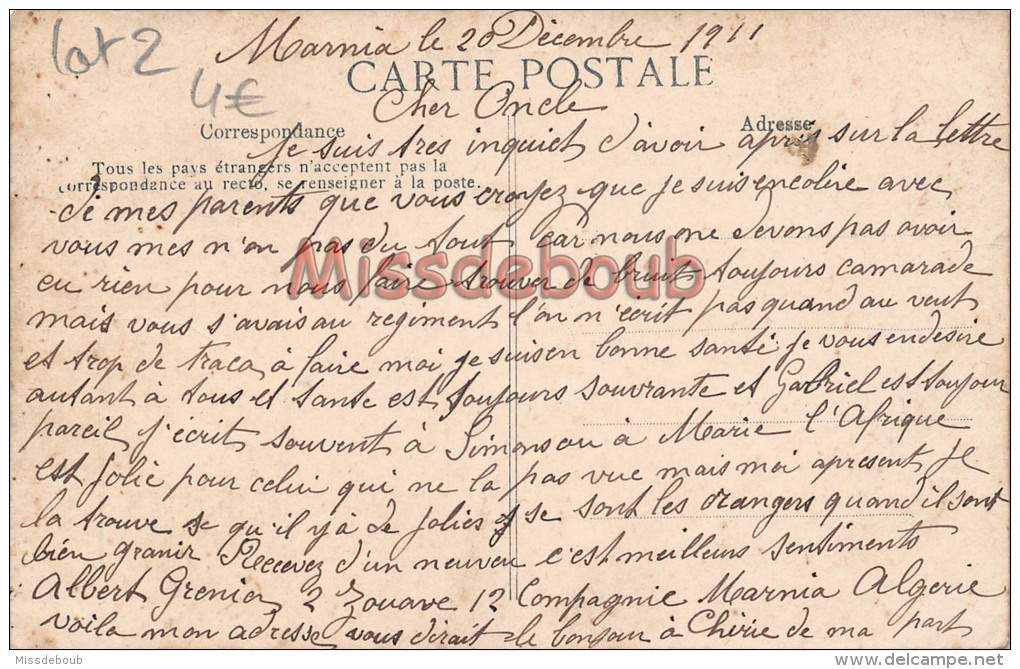 lot 2
4€
Marnia le 20 Décembre 1911
CARTE POSTALE
Cher Oncle
Correspondance
Adresse
Je suis tres inquiet d'avoir apris sur la lettre
Tous les pays étrangers n'acceptent pas la
correspondance au recto, se renseigner à la poste.
de mes parents que vous croyez que je suis encolire avec
vous mes n'on pas du tout car nous ne devons pas avoir
eu rien pour nous faire trouver de bruit toujours camarade
Missdeboub
mais vous s'avais au regiment l'on n'écrit pas quand au veut
et trop de traca à faire moi je suis en bonne santé je vous en desire
autant à tous et tante est toujours souvrante et Gabriel est toujour
pareil j'écrit souvent à Simon ou à Marie l'Afrique
est jolie pour celui qui ne la pas vue mais moi apresent je
la trouve se qu'il y à de jolies se sont les orangers quand il sont
bien granir Recevez d'un neuveu c'est meilleurs sentiments
Albert Grenier 2 Zouave 12 Compagnie Marnia Algerie
voila mon adresse vous dirait le bonjour à Cherie de ma part
Missdeboub
www.delcampe.net